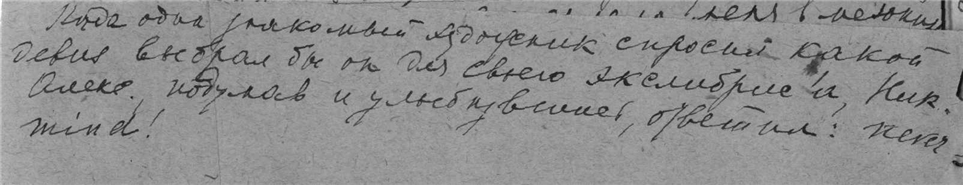 Когда один знакомый художник спросил какой
девиз выбрал бы он для своего экслибрис'а, Ник.
Алекс., подумав и улыбнувшись, ответил:
mind!